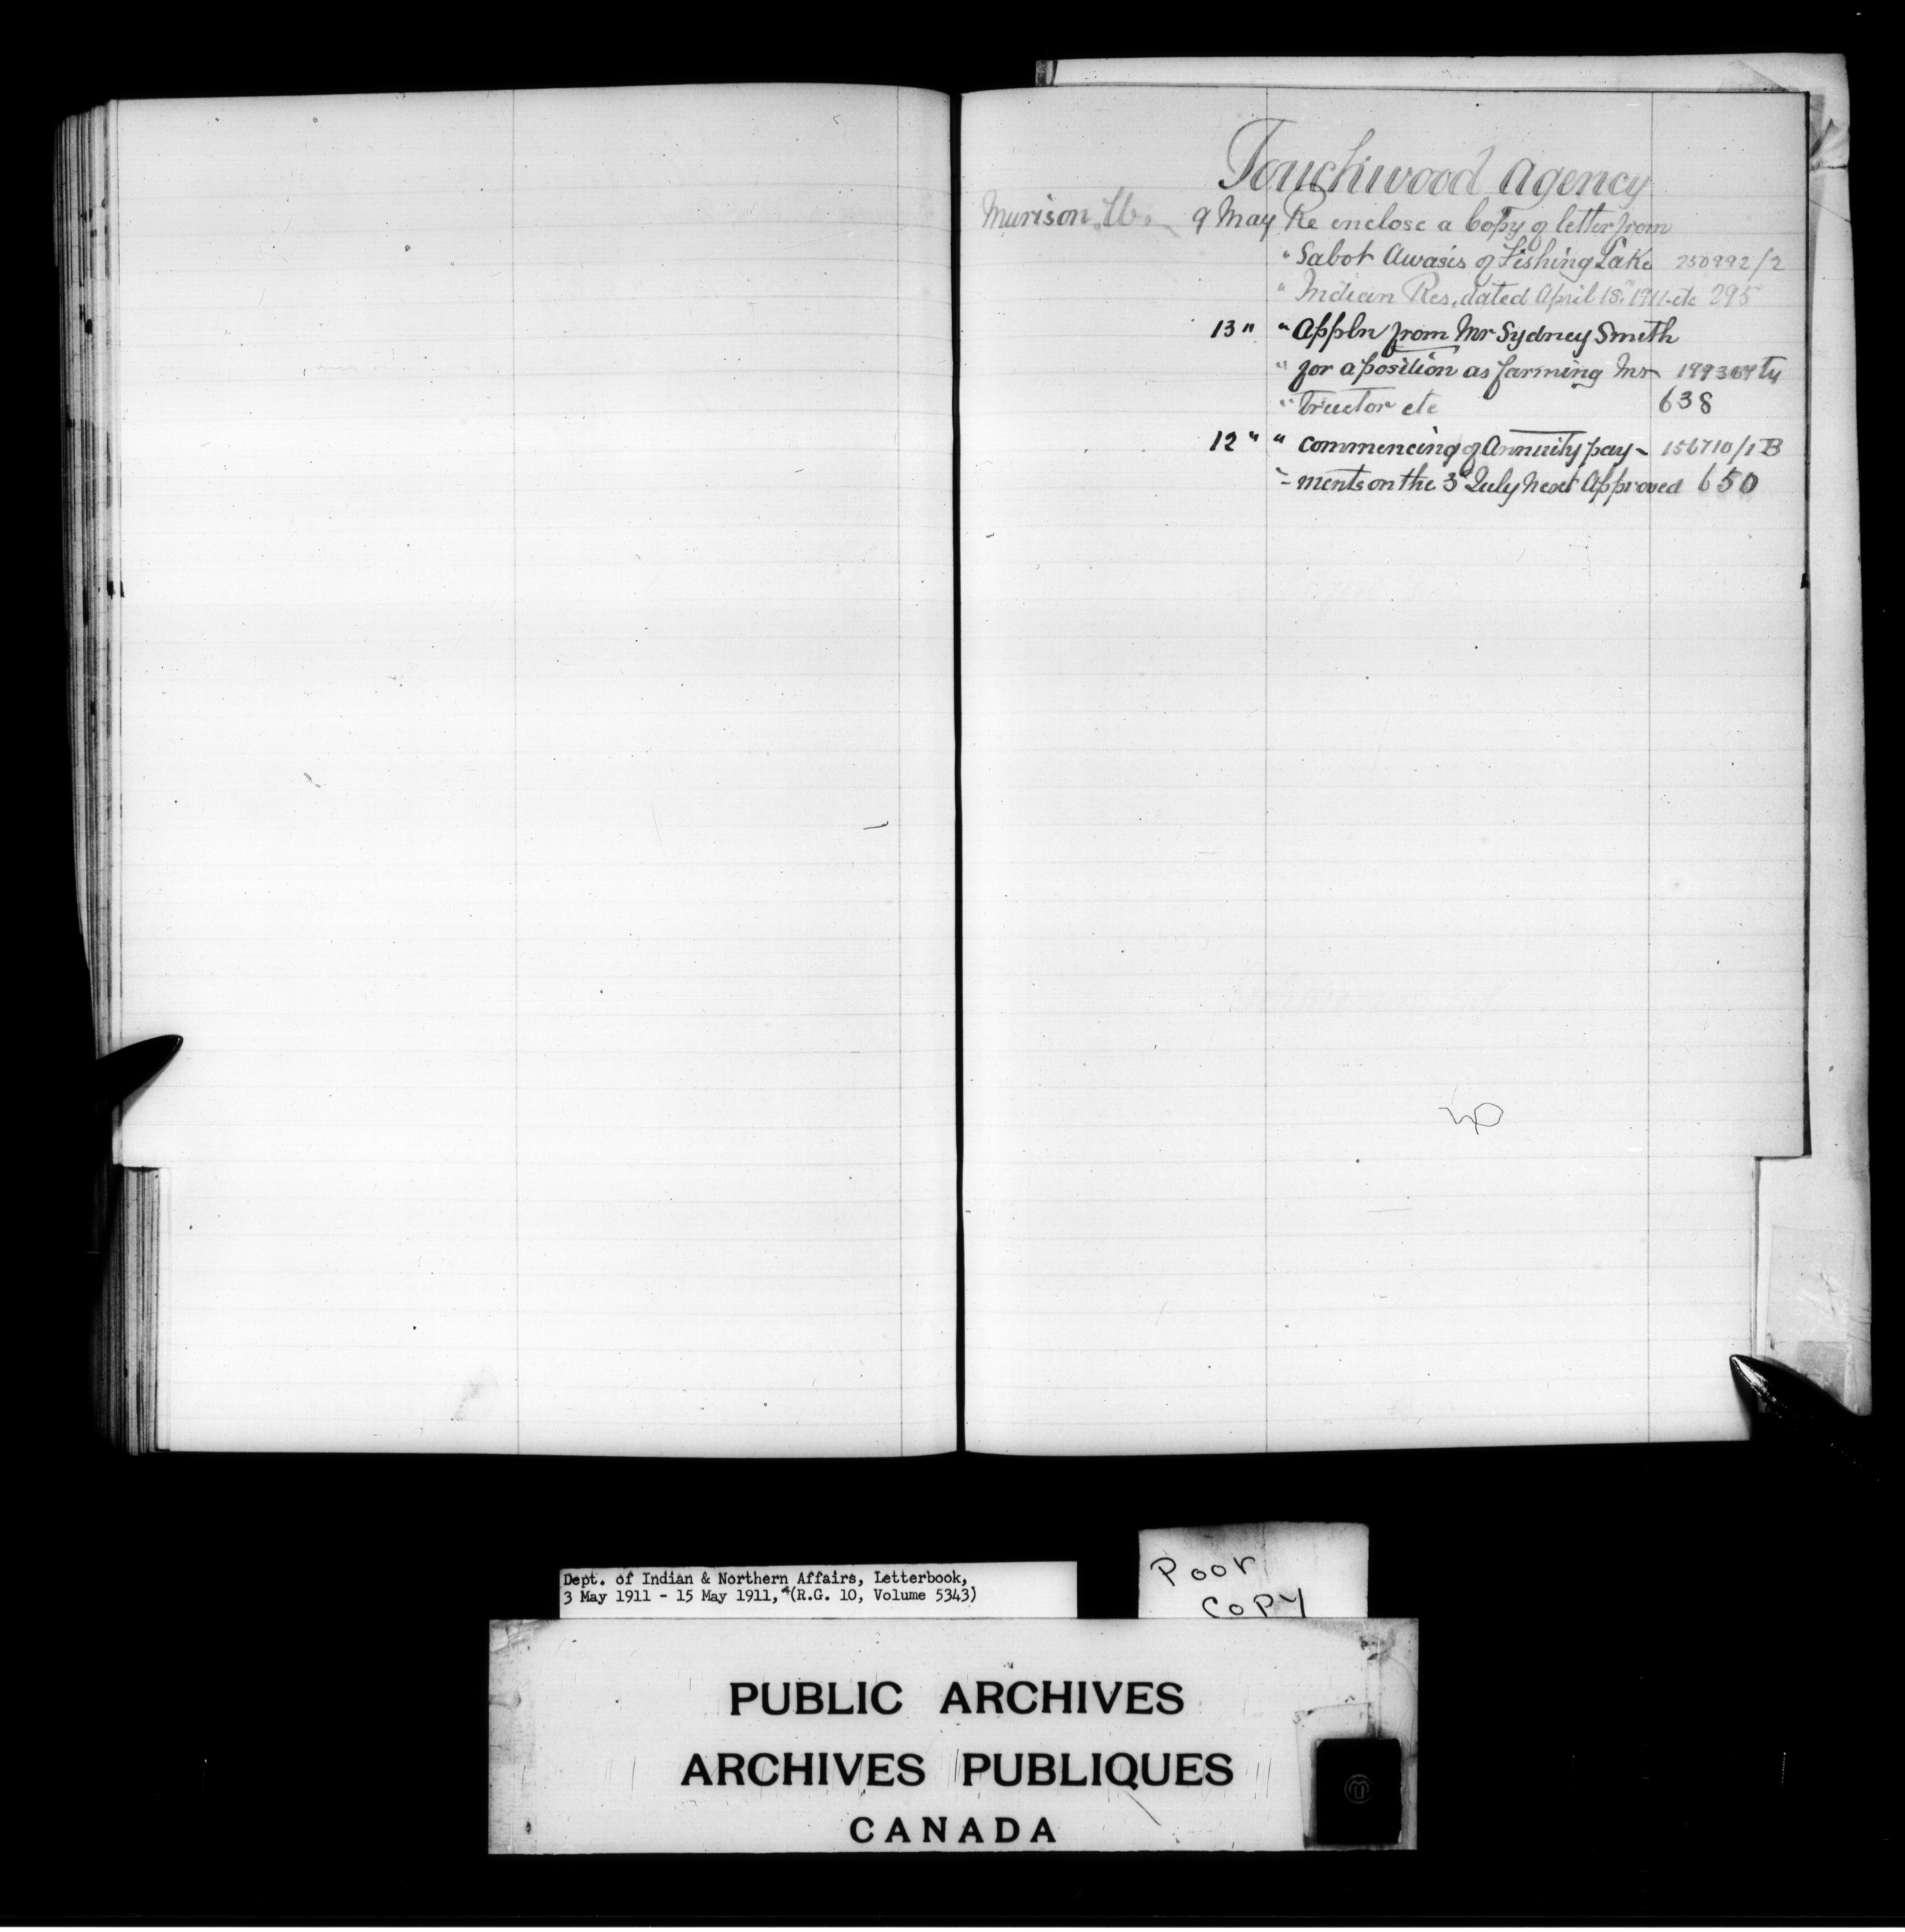 Touchwood Agency
Murison W. 9 May Re enclose a Copy of letter from
" Sabot Awasis of Fishing Lake 250992/2
" Indian Res. dated April 18th 1911 etc 295
13 " " Appln from Mr Sydney Smith
" for a position as farming Ins
" tructor etc 638
12 " " Commencing of Annuity pay - 156710/1 B
" - ments on the 3d July next Approved 650
Dept. of Indian & Northern Affairs, Letterbook,
3 May 1911 - 15 May 1911, (R.G. 10, Volume 5343)
Poor
Copy
PUBLIC ARCHIVES
ARCHIVES PUBLIQUES
CANADA